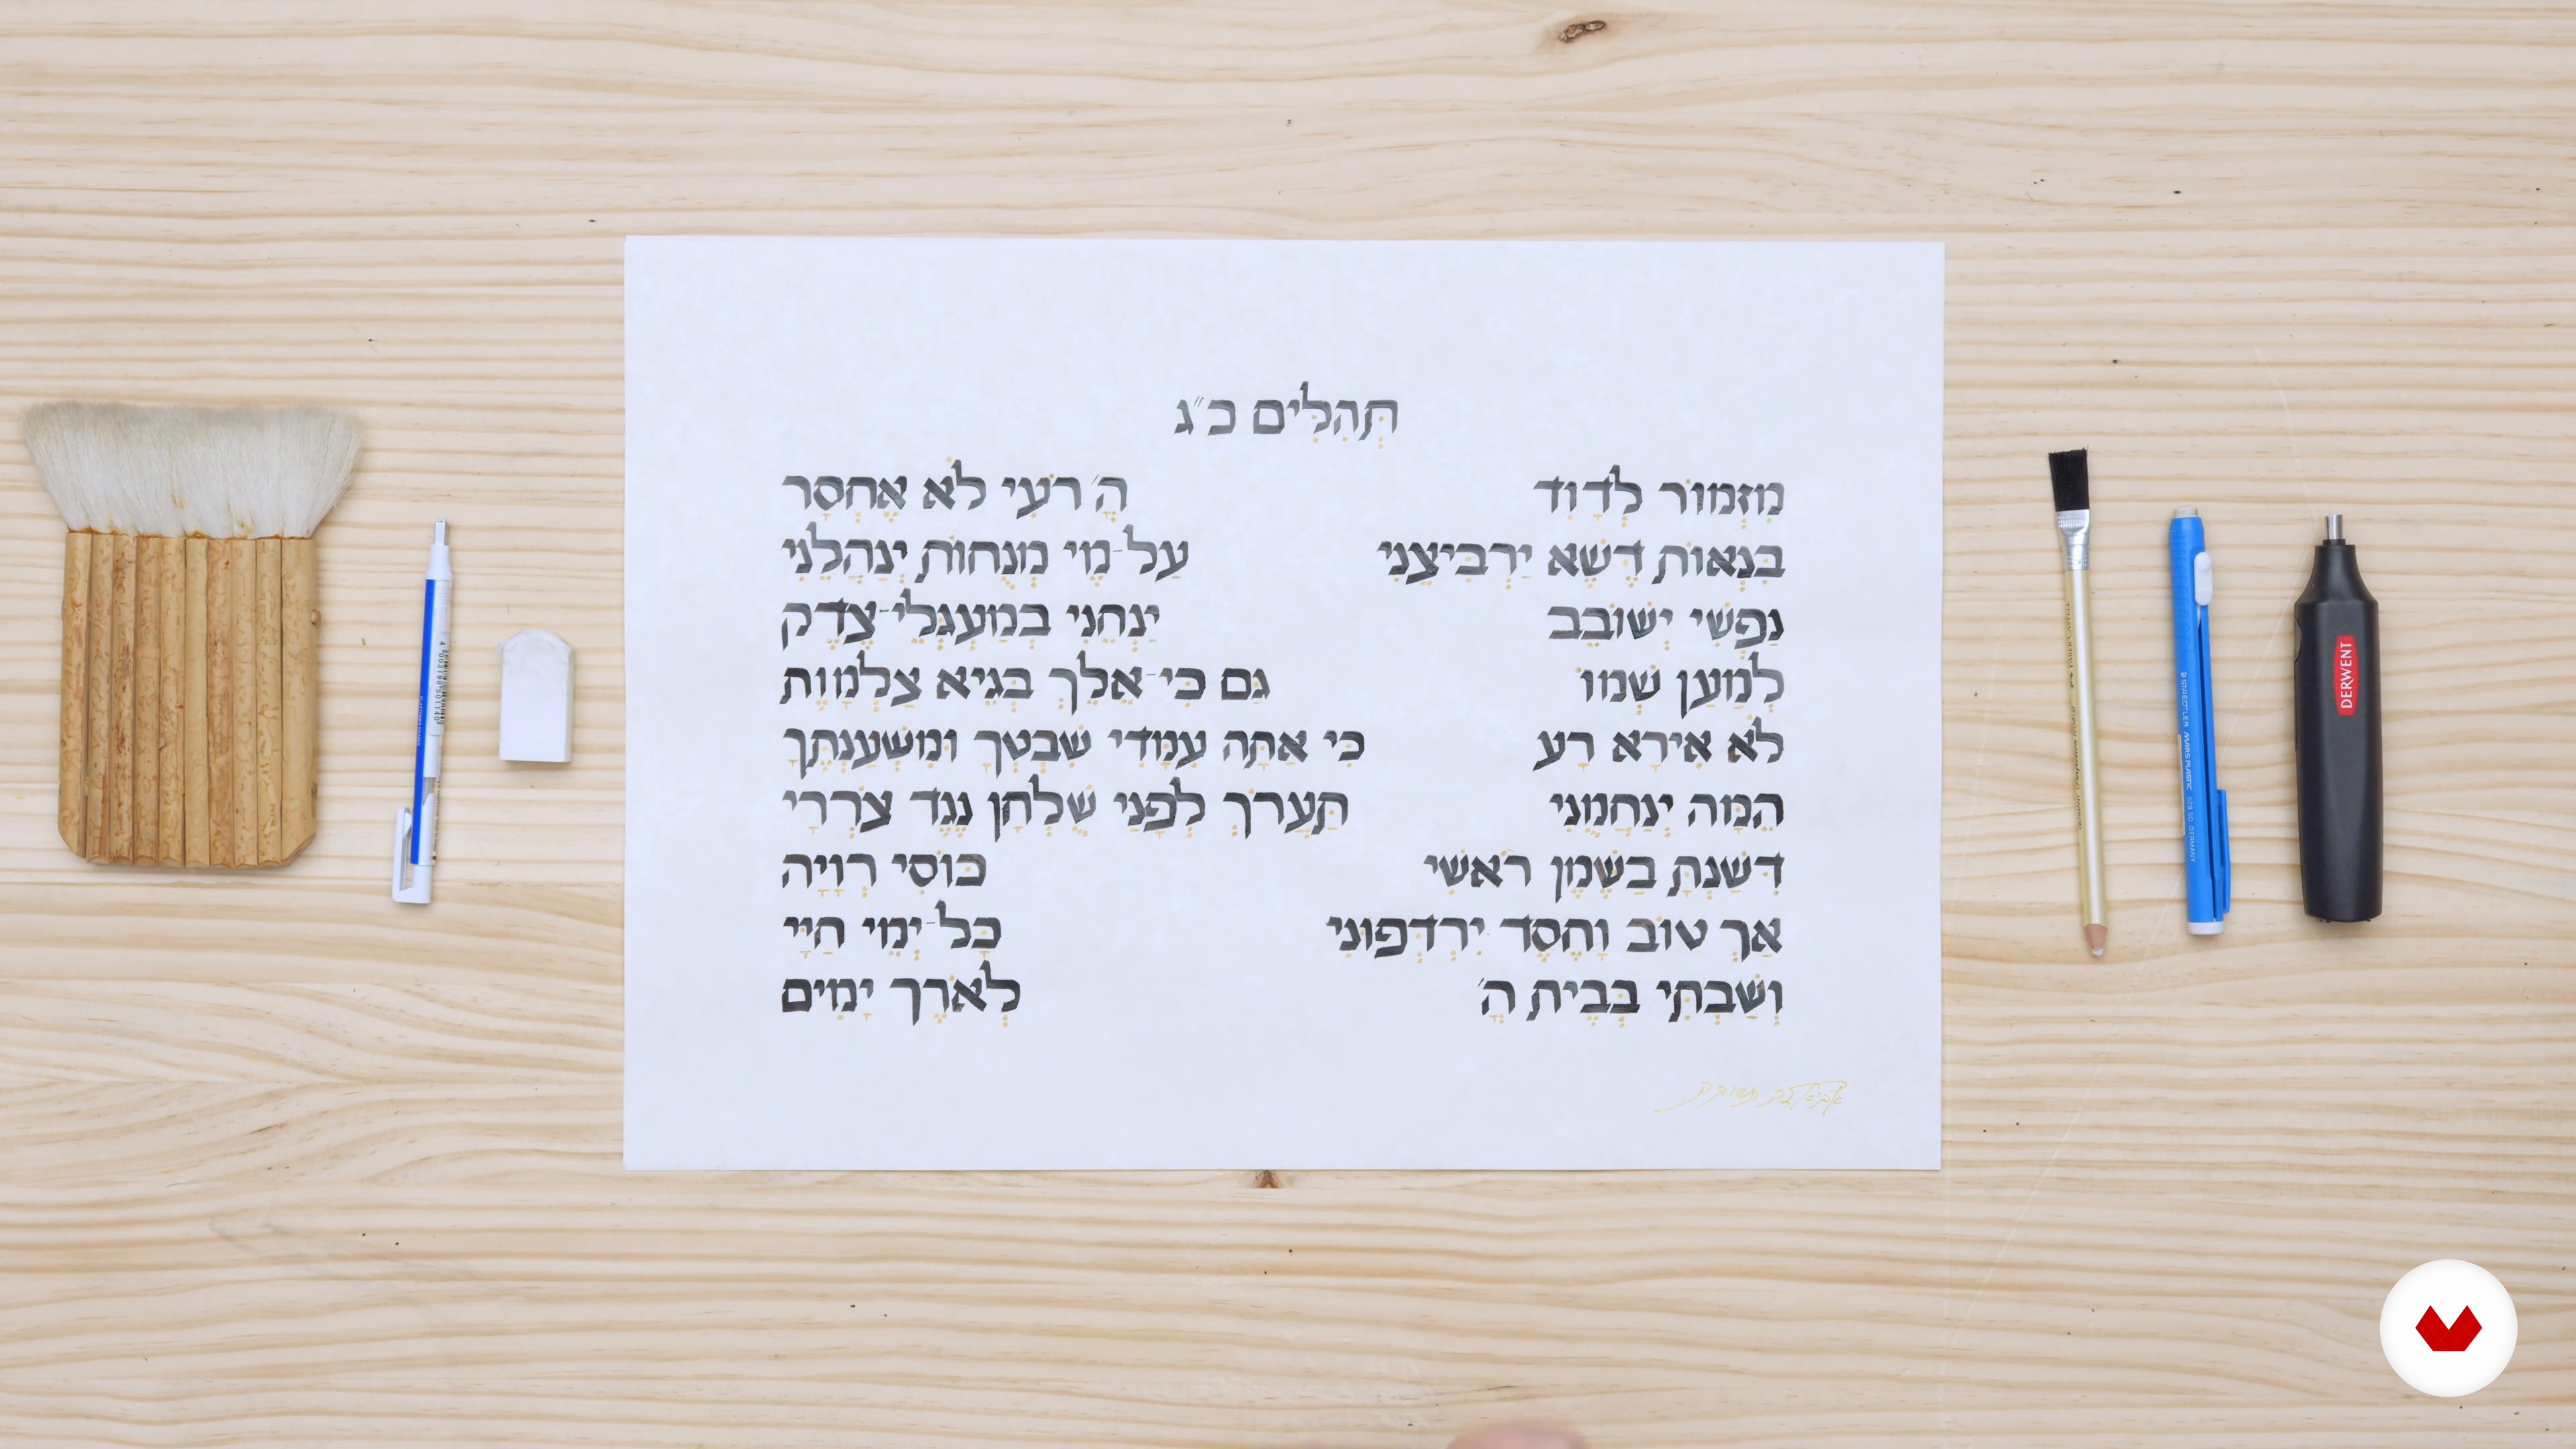 תְּהִלִּים כ״ג
מִזְמוֹר לְדָוִד ה׳ רֹעִי לֹא אֶחְסָר
בִּנְאוֹת דֶּשֶׁא יַרְבִּיצֵנִי עַל-מֵי מְנֻחוֹת יְנַהֲלֵנִי
נַפְשִׁי יְשׁוֹבֵב יַנְחֵנִי בְמַעְגְּלֵי-צֶדֶק
לְמַעַן שְׁמוֹ גַּם כִּי-אֵלֵךְ בְּגֵיא צַלְמָוֶת
לֹא אִירָא רָע כִּי אַתָּה עִמָּדִי שִׁבְטְךָ וּמִשְׁעַנְתֶּךָ
הֵמָּה יְנַחֲמֻנִי תַּעֲרֹךְ לְפָנַי שֻׁלְחָן נֶגֶד צֹרְרָי
דִּשַּׁנְתָּ בַשֶּׁמֶן רֹאשִׁי כּוֹסִי רְוָיָה
אַךְ טוֹב וָחֶסֶד יִרְדְּפוּנִי כָּל-יְמֵי חַיָּי
וְשַׁבְתִּי בְּבֵית ה׳ לְאֹרֶךְ יָמִים
DERWENT
STAEDTLER MARS PLASTIC 528 50 GERMANY